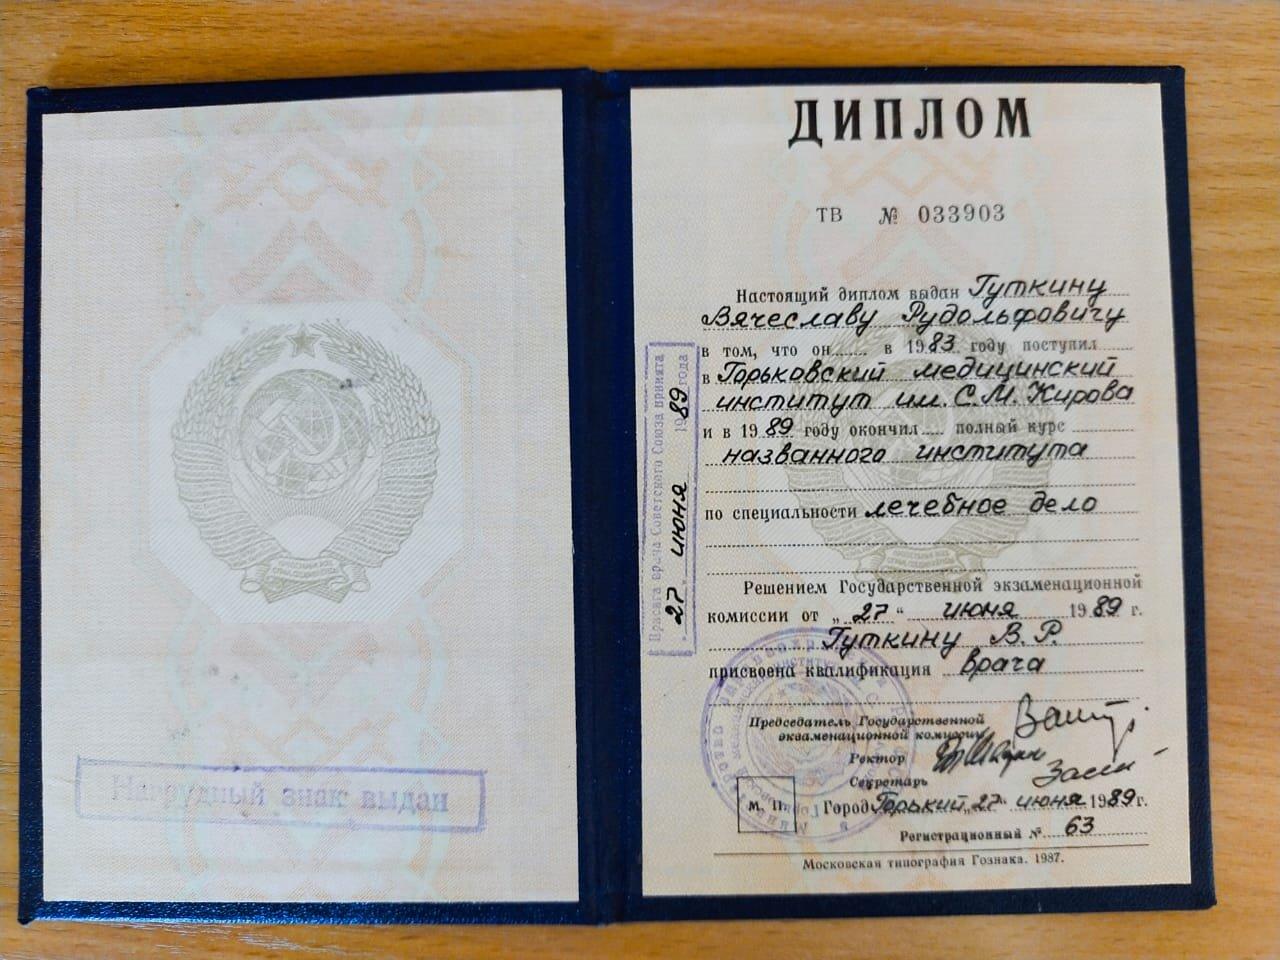 Нагрудный знак выдан
ДИПЛОМ
ТВ № 033903
Настоящий диплом выдан Гуткину
Вячеславу Рудольфовичу
в том, что он в 1983 году поступил
в Горьковский медицинский
институт им. С.М. Кирова
и в 1989 году окончил полный курс
названного института
по специальности лечебное дело
Решением Государственной экзаменационной
комиссии от „27“ июня 1989 г.
Гуткину В. Р.
присвоена квалификация врача
Председатель Государственной
экзаменационной комиссии
Ректор
Секретарь
М. П. Город Горький „27“ июня 1989 г.
Регистрационный № 63
Московская типография Гознака. 1987.
Присяга врача Советского Союза принята
„27„ июня 1989 года